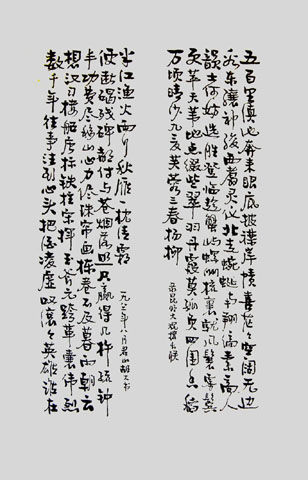 五百里滇池奔来眼底披襟岸帻喜茫茫空阔无边
看东骧神骏西翥灵仪北走蜿蜒南翔缟素高人
韵士何妨选胜登临趁蟹屿螺洲梳裹就风鬟雾鬓
更苹天苇地点缀些翠羽丹霞莫辜负四围香稻
万顷晴沙九夏芙蓉三春杨柳
录昆明大观楼长联
数千年往事注到心头把酒凌虚叹滚滚英雄谁在
想汉习楼船唐标铁柱宋挥玉斧元跨革囊伟烈
丰功费尽移山心力尽珠帘画栋卷不及暮雨朝云
便断碣残碑都付与苍烟落照只赢得几杵疏钟
半江渔火两行秋雁一枕清霜